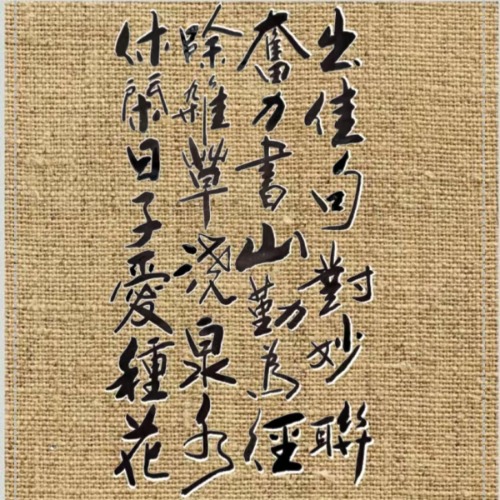 出佳句對妙聯
奮力書山勤為徑
除雜草澆泉水
休閑日子愛種花